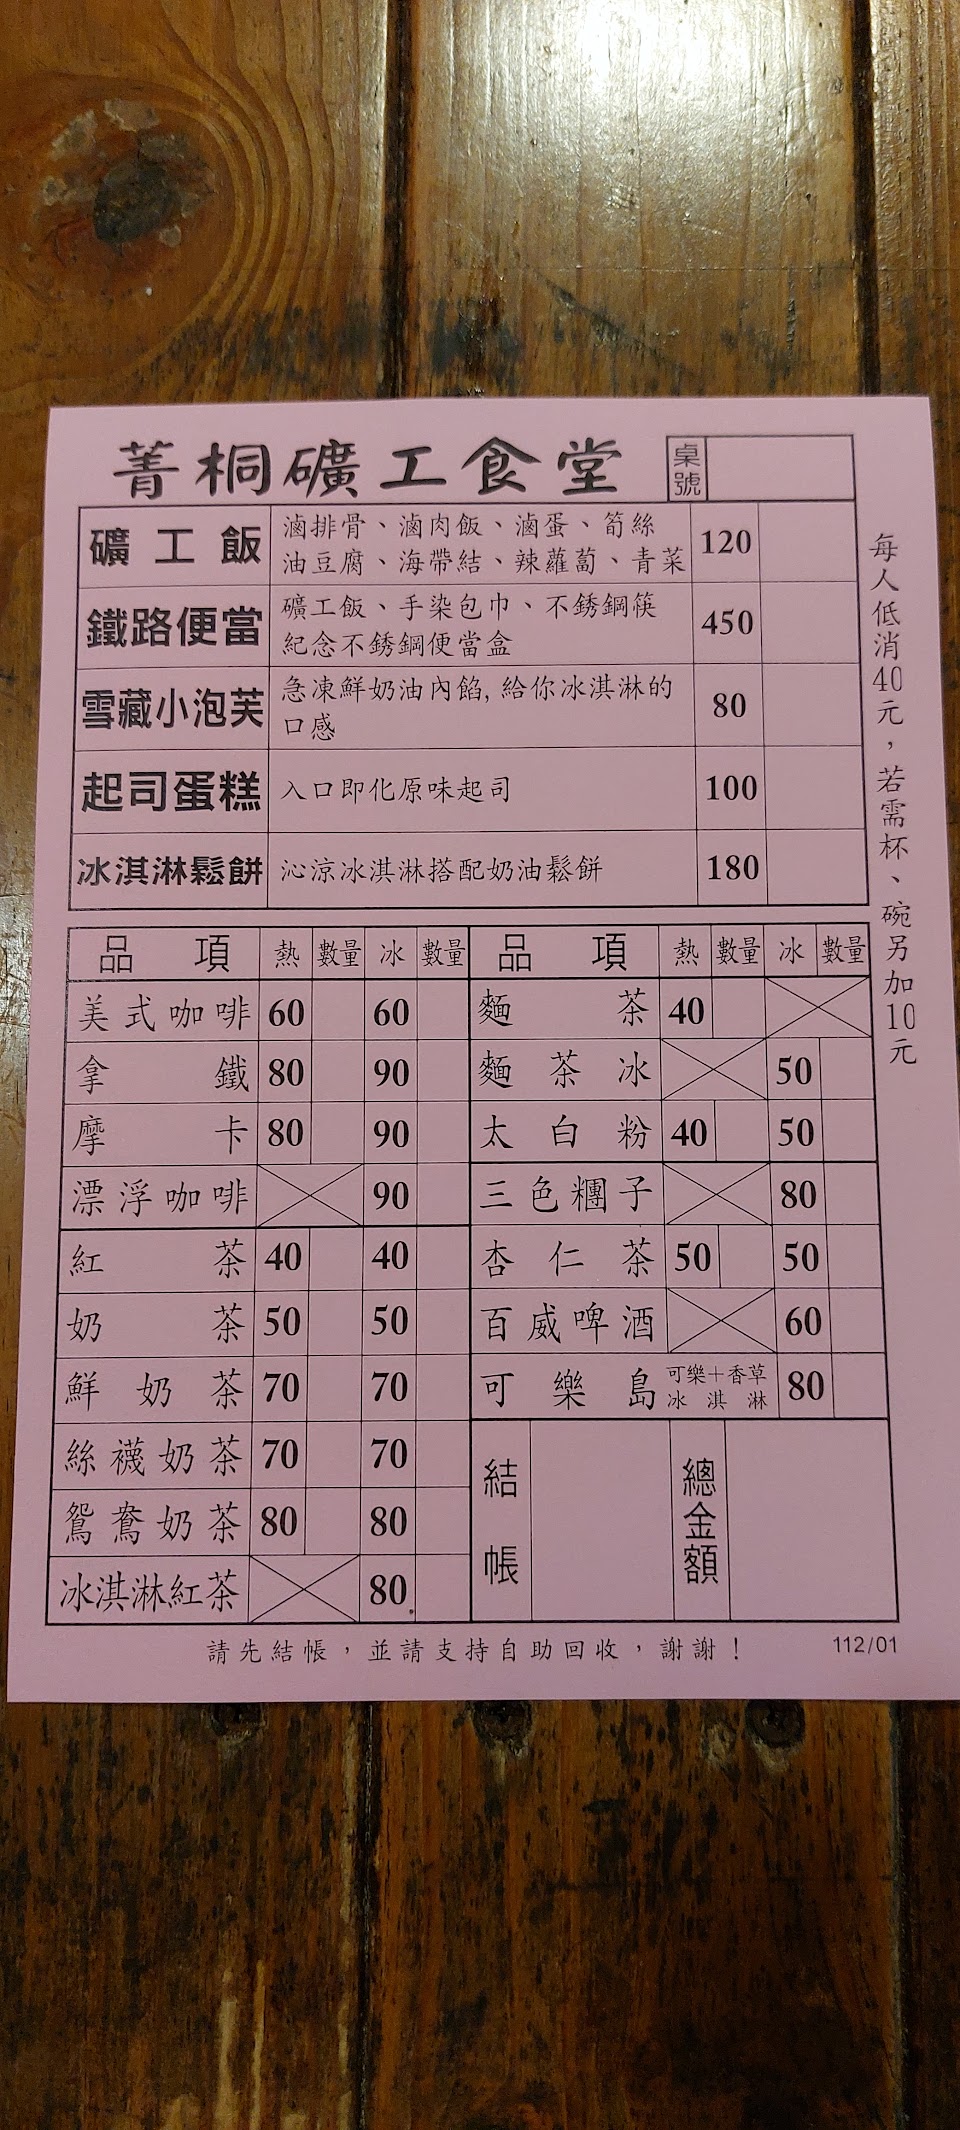 菁桐礦工食堂
桌號
礦工飯 滷排骨、滷肉飯、滷蛋、筍絲 120
油豆腐、海帶結、辣蘿蔔、青菜
鐵路便當 礦工飯、手染包巾、不銹鋼筷 450
紀念不銹鋼便當盒
雪藏小泡芙 急凍鮮奶油內餡,給你冰淇淋的 80
口感
起司蛋糕 入口即化原味起司 100
冰淇淋鬆餅 沁涼冰淇淋搭配奶油鬆餅 180
每人低消40元，若需杯、碗另加10元
品項 熱 數量 冰 數量
美式咖啡 60 60
拿鐵 80 90
摩卡 80 90
漂浮咖啡 90
紅茶 40 40
奶茶 50 50
鮮奶茶 70 70
絲襪奶茶 70 70
鴛鴦奶茶 80 80
冰淇淋紅茶 80
品項 熱 數量 冰 數量
麵茶 40
麵茶冰 50
太白粉 40 50
三色糰子 80
杏仁茶 50 50
百威啤酒 60
可樂島 可樂＋香草冰淇淋 80
結帳
總金額
請先結帳，並請支持自助回收，謝謝！
112/01